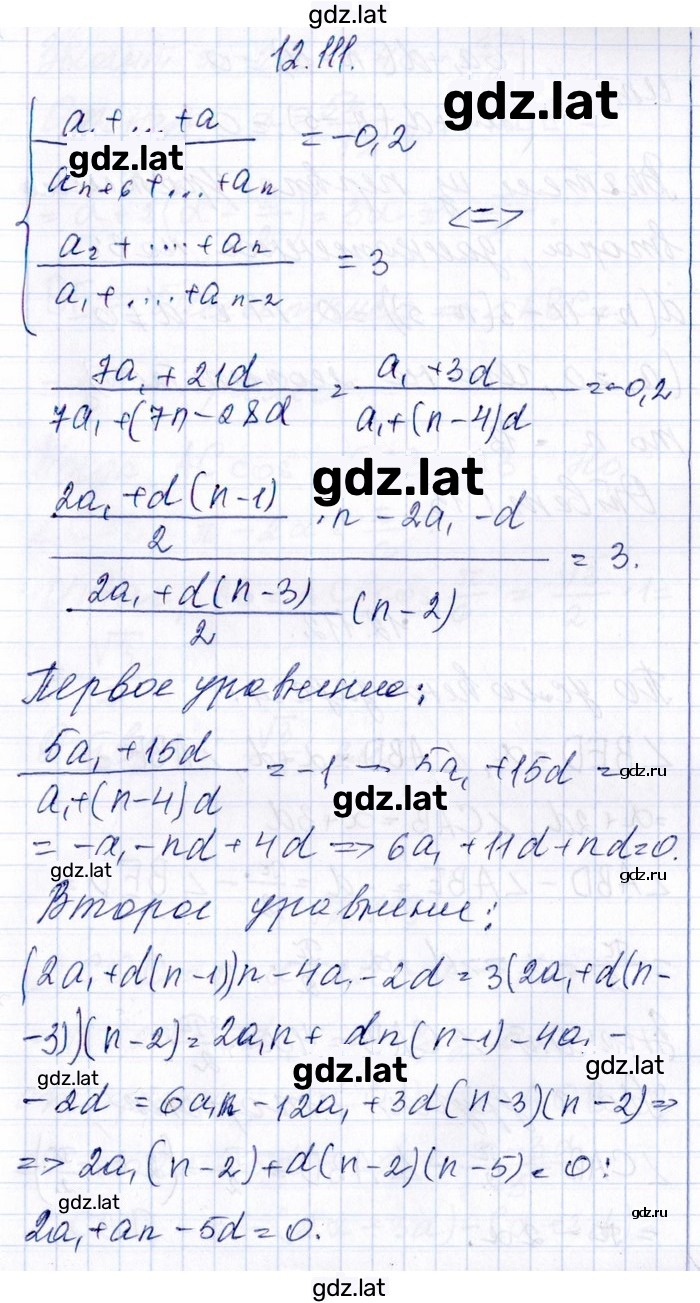 gdz.lat
12.111.
gdz.lat
a₁ + ... + a / aₙ₊₆ + ... + aₙ = -0,2
gdz.lat
<=>
a₂ + ... + aₙ / a₁ + ... + a ₙ₋₂ = 3
7a₁ + 21d / 7a₁ + (7n - 28d = a₁ + 3d / a₁ + (n - 4)d = -0,2
gdz.lat
2a₁ + d(n-1) / 2 · n - 2a₁ - d / 2a₁ + d(n-3) / 2 (n-2) = 3.
Первое уравнение:
5a₁ + 15d / a₁ + (n-4)d = -1 → 5a₁ + 15d =
gdz.ru
gdz.lat
= -a₁ - nd + 4d => 6a₁ + 11d + nd = 0.
gdz.lat
gdz.ru
Второе уравнение:
(2a₁ + d(n-1))n - 4a₁ - 2d = 3(2a₁ + d(n-
-3))(n-2) = 2a₁n + dn(n-1) - 4a₁ -
gdz.lat
gdz.lat
gdz.lat
- 2d = 6a₁n - 12a₁ + 3d(n-3)(n-2) =>
=> 2a₁(n-2) + d(n-2)(n-5) = 0:
gdz.lat
gdz.ru
2a₁ + an - 5d = 0.
gdz.lat